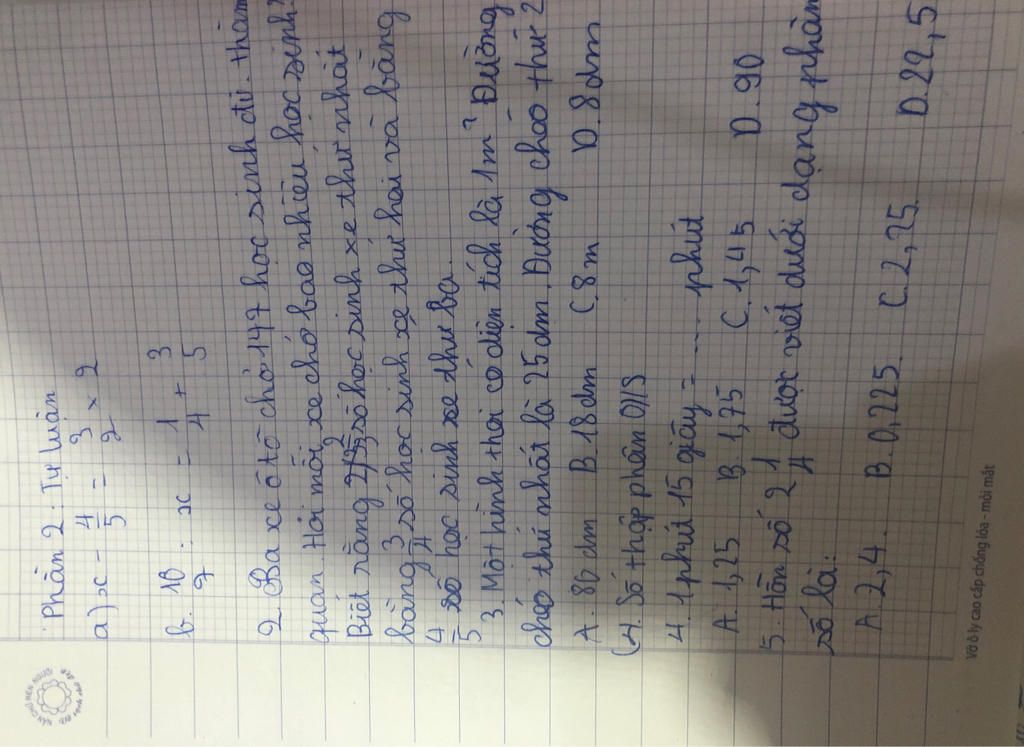 Phần 2: Tự luận
a) x - 4/5 = 3/2 × 2
b. 10/7 : x = 1/4 + 3/5
2. Ba xe ô tô chở 147 học sinh đi thăm
quan. Hỏi mỗi xe chở bao nhiêu học sinh?
Biết rằng số học sinh xe thứ nhất
bằng 3/4 số học sinh xe thứ hai và bằng
4/5 số học sinh xe thứ ba.
3. Một hình thoi có diện tích là 1m² Đường
chéo thứ nhất là 25 dm. Đường chéo thứ 2
A. 80 dm B. 18 dm C. 8 m D. 8 dm
(4. Số thập phân 0,18
4. 1 phút 15 giây = ..... phút
A. 1,25 B. 1,75 C. 1,45 D. 90
5. Hỗn số 2 1/4 được viết dưới dạng phân
số là:
A. 2,4. B. 0,225. C. 2,25. D. 22,5
Vở ô ly cao cấp chống lóa - mỏi mắt